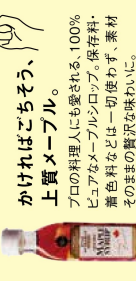 かければごちそう、
上質メープル。
プロの料理人にも愛される、100%
ピュアなメープルシロップ。保存料・
着色料などは一切使わず、素材
そのままの贅沢な味わいに。
MAPLE
SYRUP